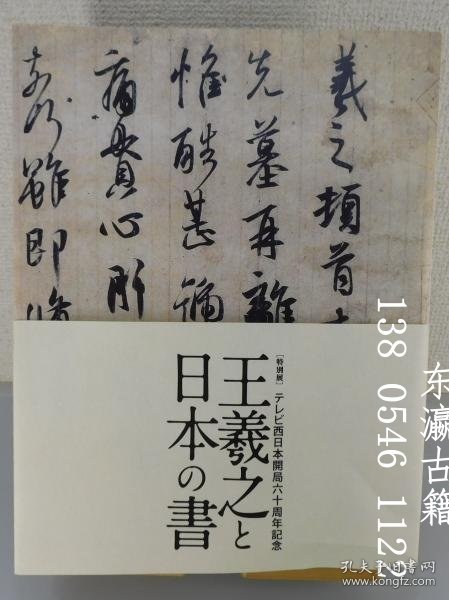 羲之頓首
先墓再離
惟酷甚
痛貫心肝
奈何雖即
［特別展］テレビ西日本開局六十周年記念
王羲之と
日本の書
东瀛古籍
138 0546 1122
孔夫子旧书网
www.kongfz.com